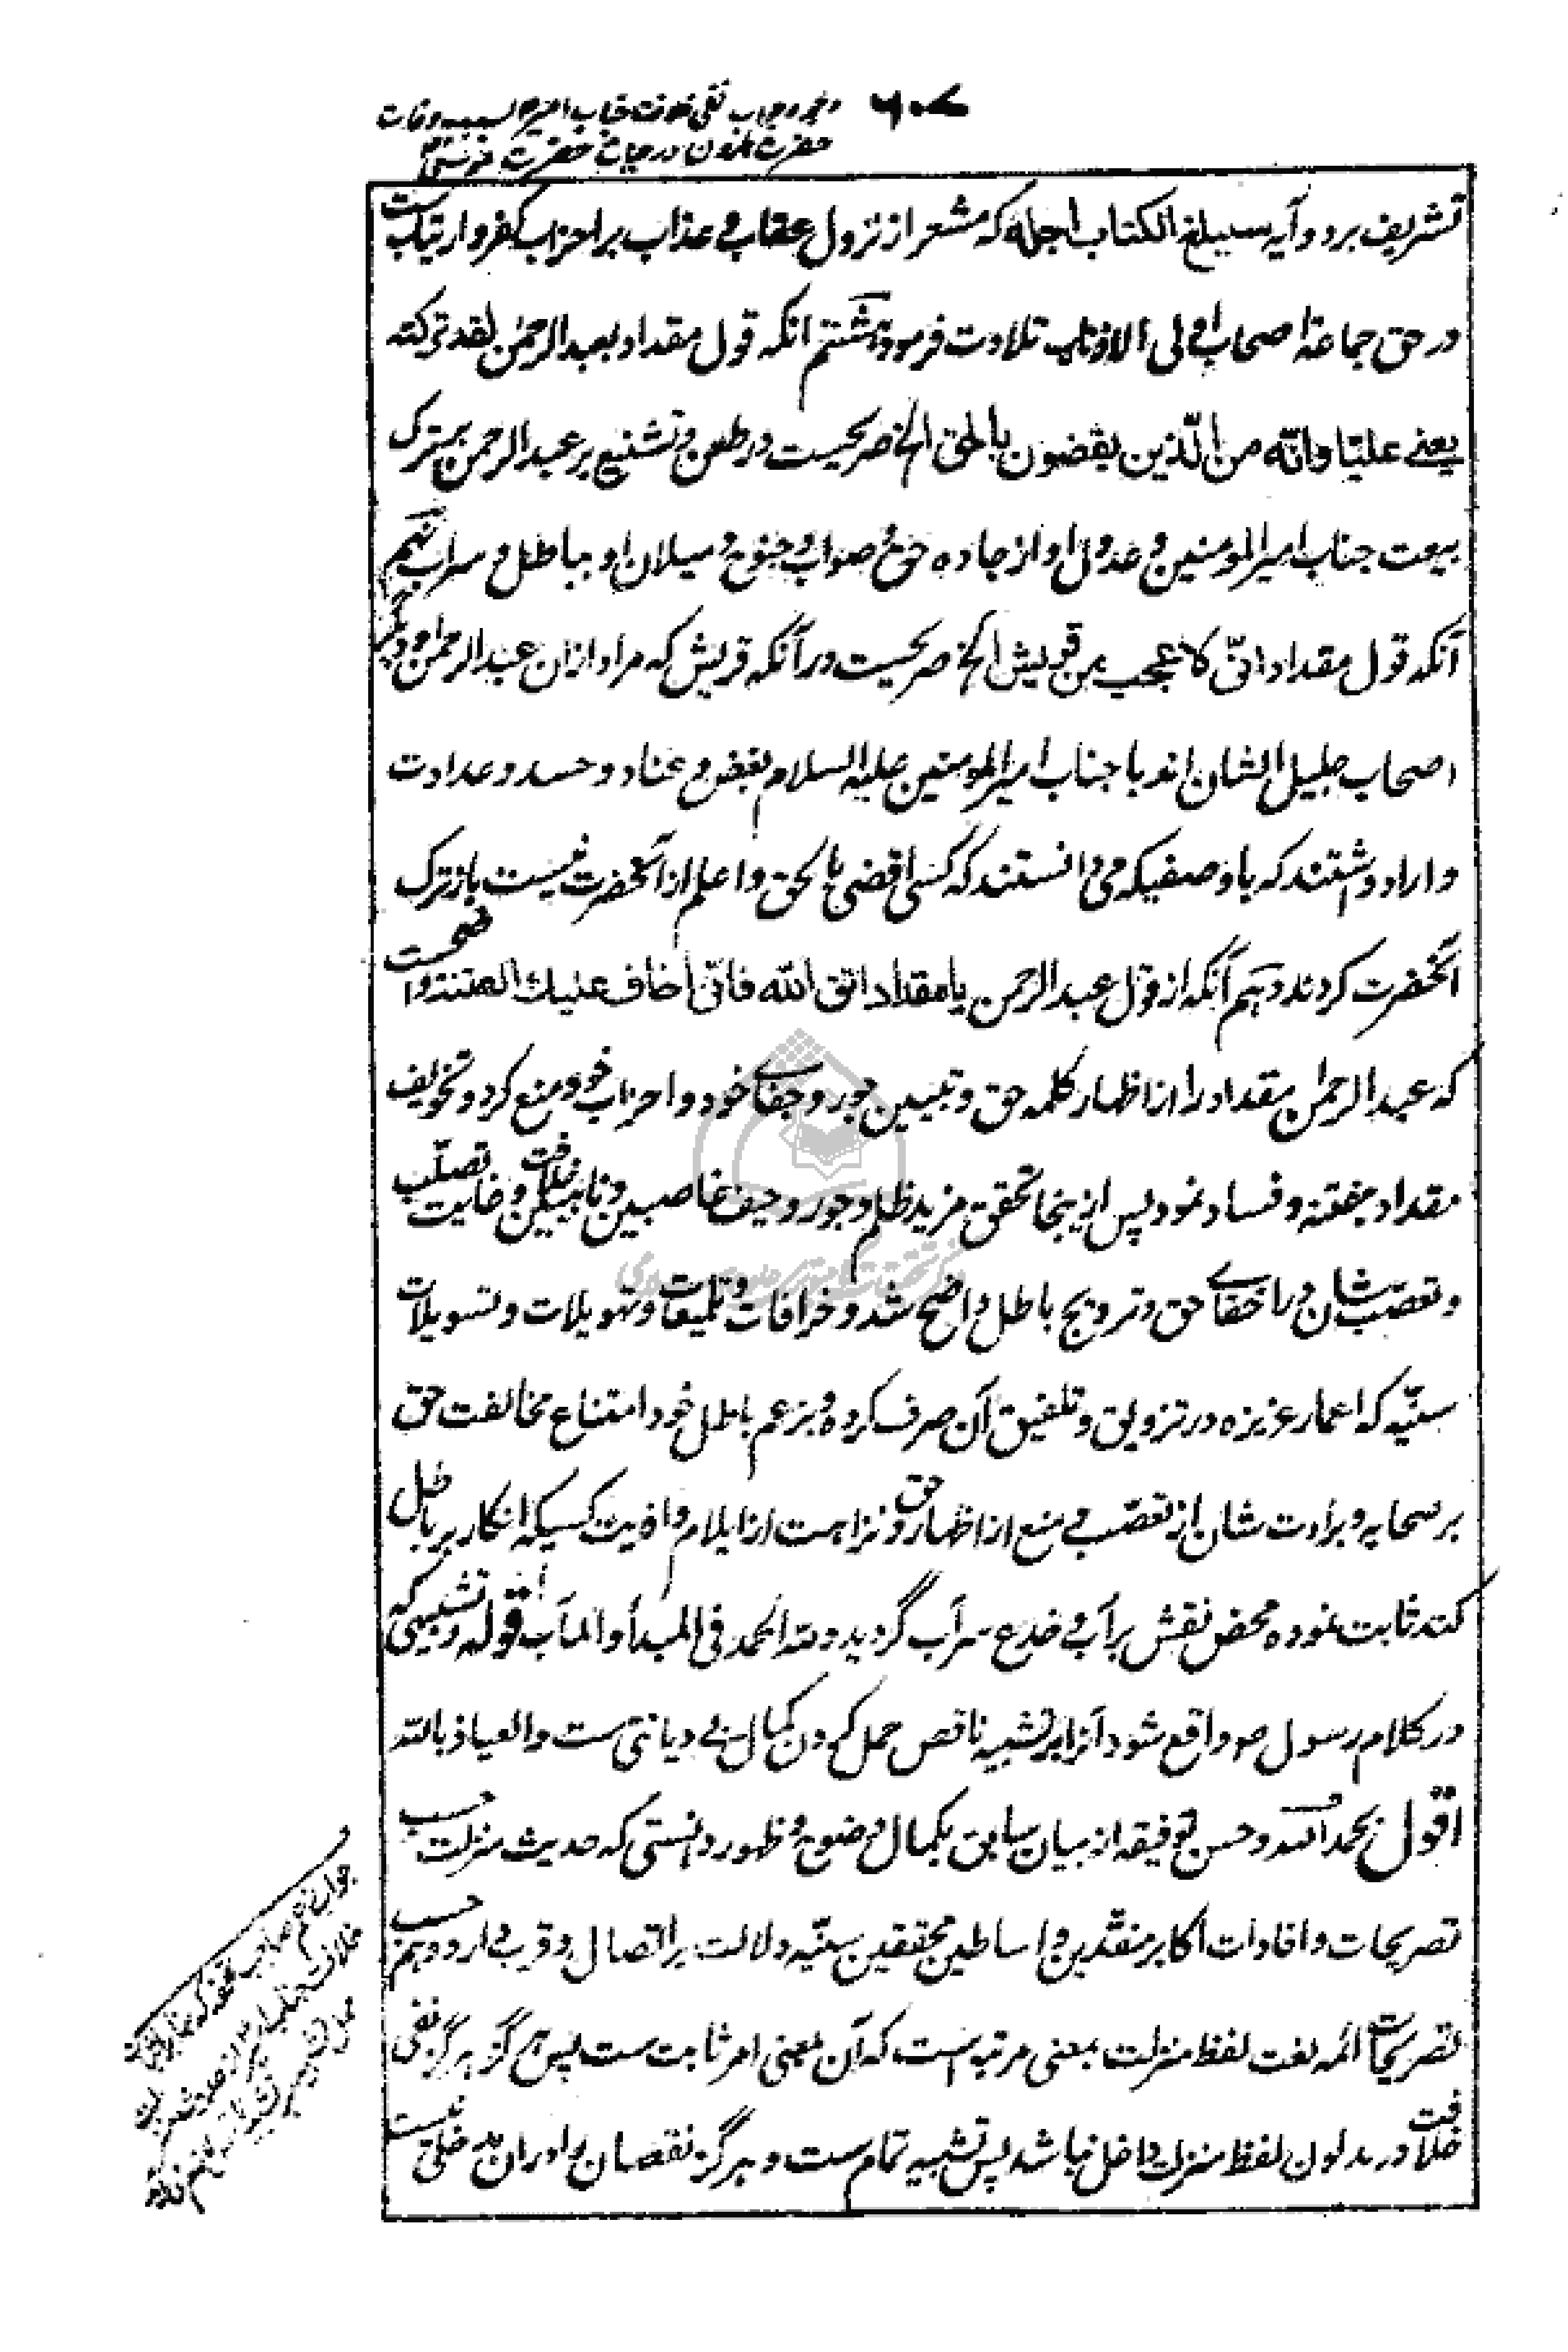 ۶۰۷
وجوه جواب نفی خلافت جناب امیر بسبب وفات
حضرت هارون در حیات حضرت موسی
تشریف برد و آیه سیبلغ الکتاب اجله که مشعر از نزول عقاب و عذاب بر احزاب کفر و ارتیاب ست
در حق جماعة اصحاب اولی الاذناب تلاوت فرمود هشتم آنکه قول مقداد بعبد الرحمن لقد ترکته
یعنی علیّا وانّه من الّذین یقضون بالحق الخ صریحست در طعن و تشنیع بر عبد الرحمن بترک
بیعت جناب امیر المومنین و عدول او از جاده حق و صواب و جنوح و میلان او بباطل و سراب نهم
آنکه قول مقداد انّی لاعجب من قریش الخ صریحست در آنکه قریش که مراد ازان عبد الرحمن و دیگر
اصحاب جلیل الشان اند با جناب امیر المومنین علیه السلام بغض و عناد و حسد و عداوت
و اراد داشتند که باوصفیکه می دانستند که کسی اقضی بالحق و اعلم از آنحضرت نیست باز ترک
آنحضرت کردند دهم آنکه از قول عبد الرحمن یا مقداد اتق الله فانّی اخاف علیك الفتنة واضحست
که عبد الرحمن مقداد را از اظهار کلمه حق و تبیین جور و جفای خود و احزاب خود منع کرد و تخویف
مقداد بفتنه و فساد نمود پس ازینجا تحقق مزید ظلم و جور و حیف غاصبین و ناهبین خلافت و غایت تصلّب
و تعصّب شان در اخفای حق و ترویج باطل واضح شد و خرافات و تلمیعات و تهویلات و تسویلات
سنیّه که اعمار عزیزه در تزویق و تلفیق آن صرف کرده و بزعم باطل خود امتناع مخالفت حق
بر صحابه و براءت شان از تعصّب و منع از اظهار حق و نزاهت از ایلام و اذیت کسیکه انکار بر باطل
کند ثابت نموده محض نقش بر آب و خدع سراب گردید و لله الحمد فی المبدأ والمآب قوله و تشبیهی که
در کلام رسول ص واقع شود آنرا بر تشبیه ناقص حمل کردن کمال بی دیانتی ست والعیاذ بالله
اقول بحمد الله و حسن توفیقه از بیان سابق بکمال وضوح و ظهور دانستی که حدیث منزلت حسب
تصریحات و افادات اکابر منقّدین و اساطین محققین سنیّه دلالت بر اتصال و قرب دارد و هم حسب
تصریحات ائمه لغت لفظ منزلت بمعنی مرتبه است که آن بمعنی امر ثابت ست پس هرگز هرگز نفی
خلافت در مدلول لفظ منزلت داخل نباشد پس تشبیه تمام ست و هرگز نقصان را دران مدخلی نیست
جواب زعم صاحب تحفه که
خلافت جناب امیر از حدیث